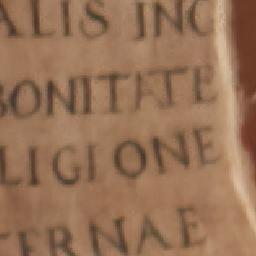 ALIS INC
BONITATE
LIGIONE
TERNAE